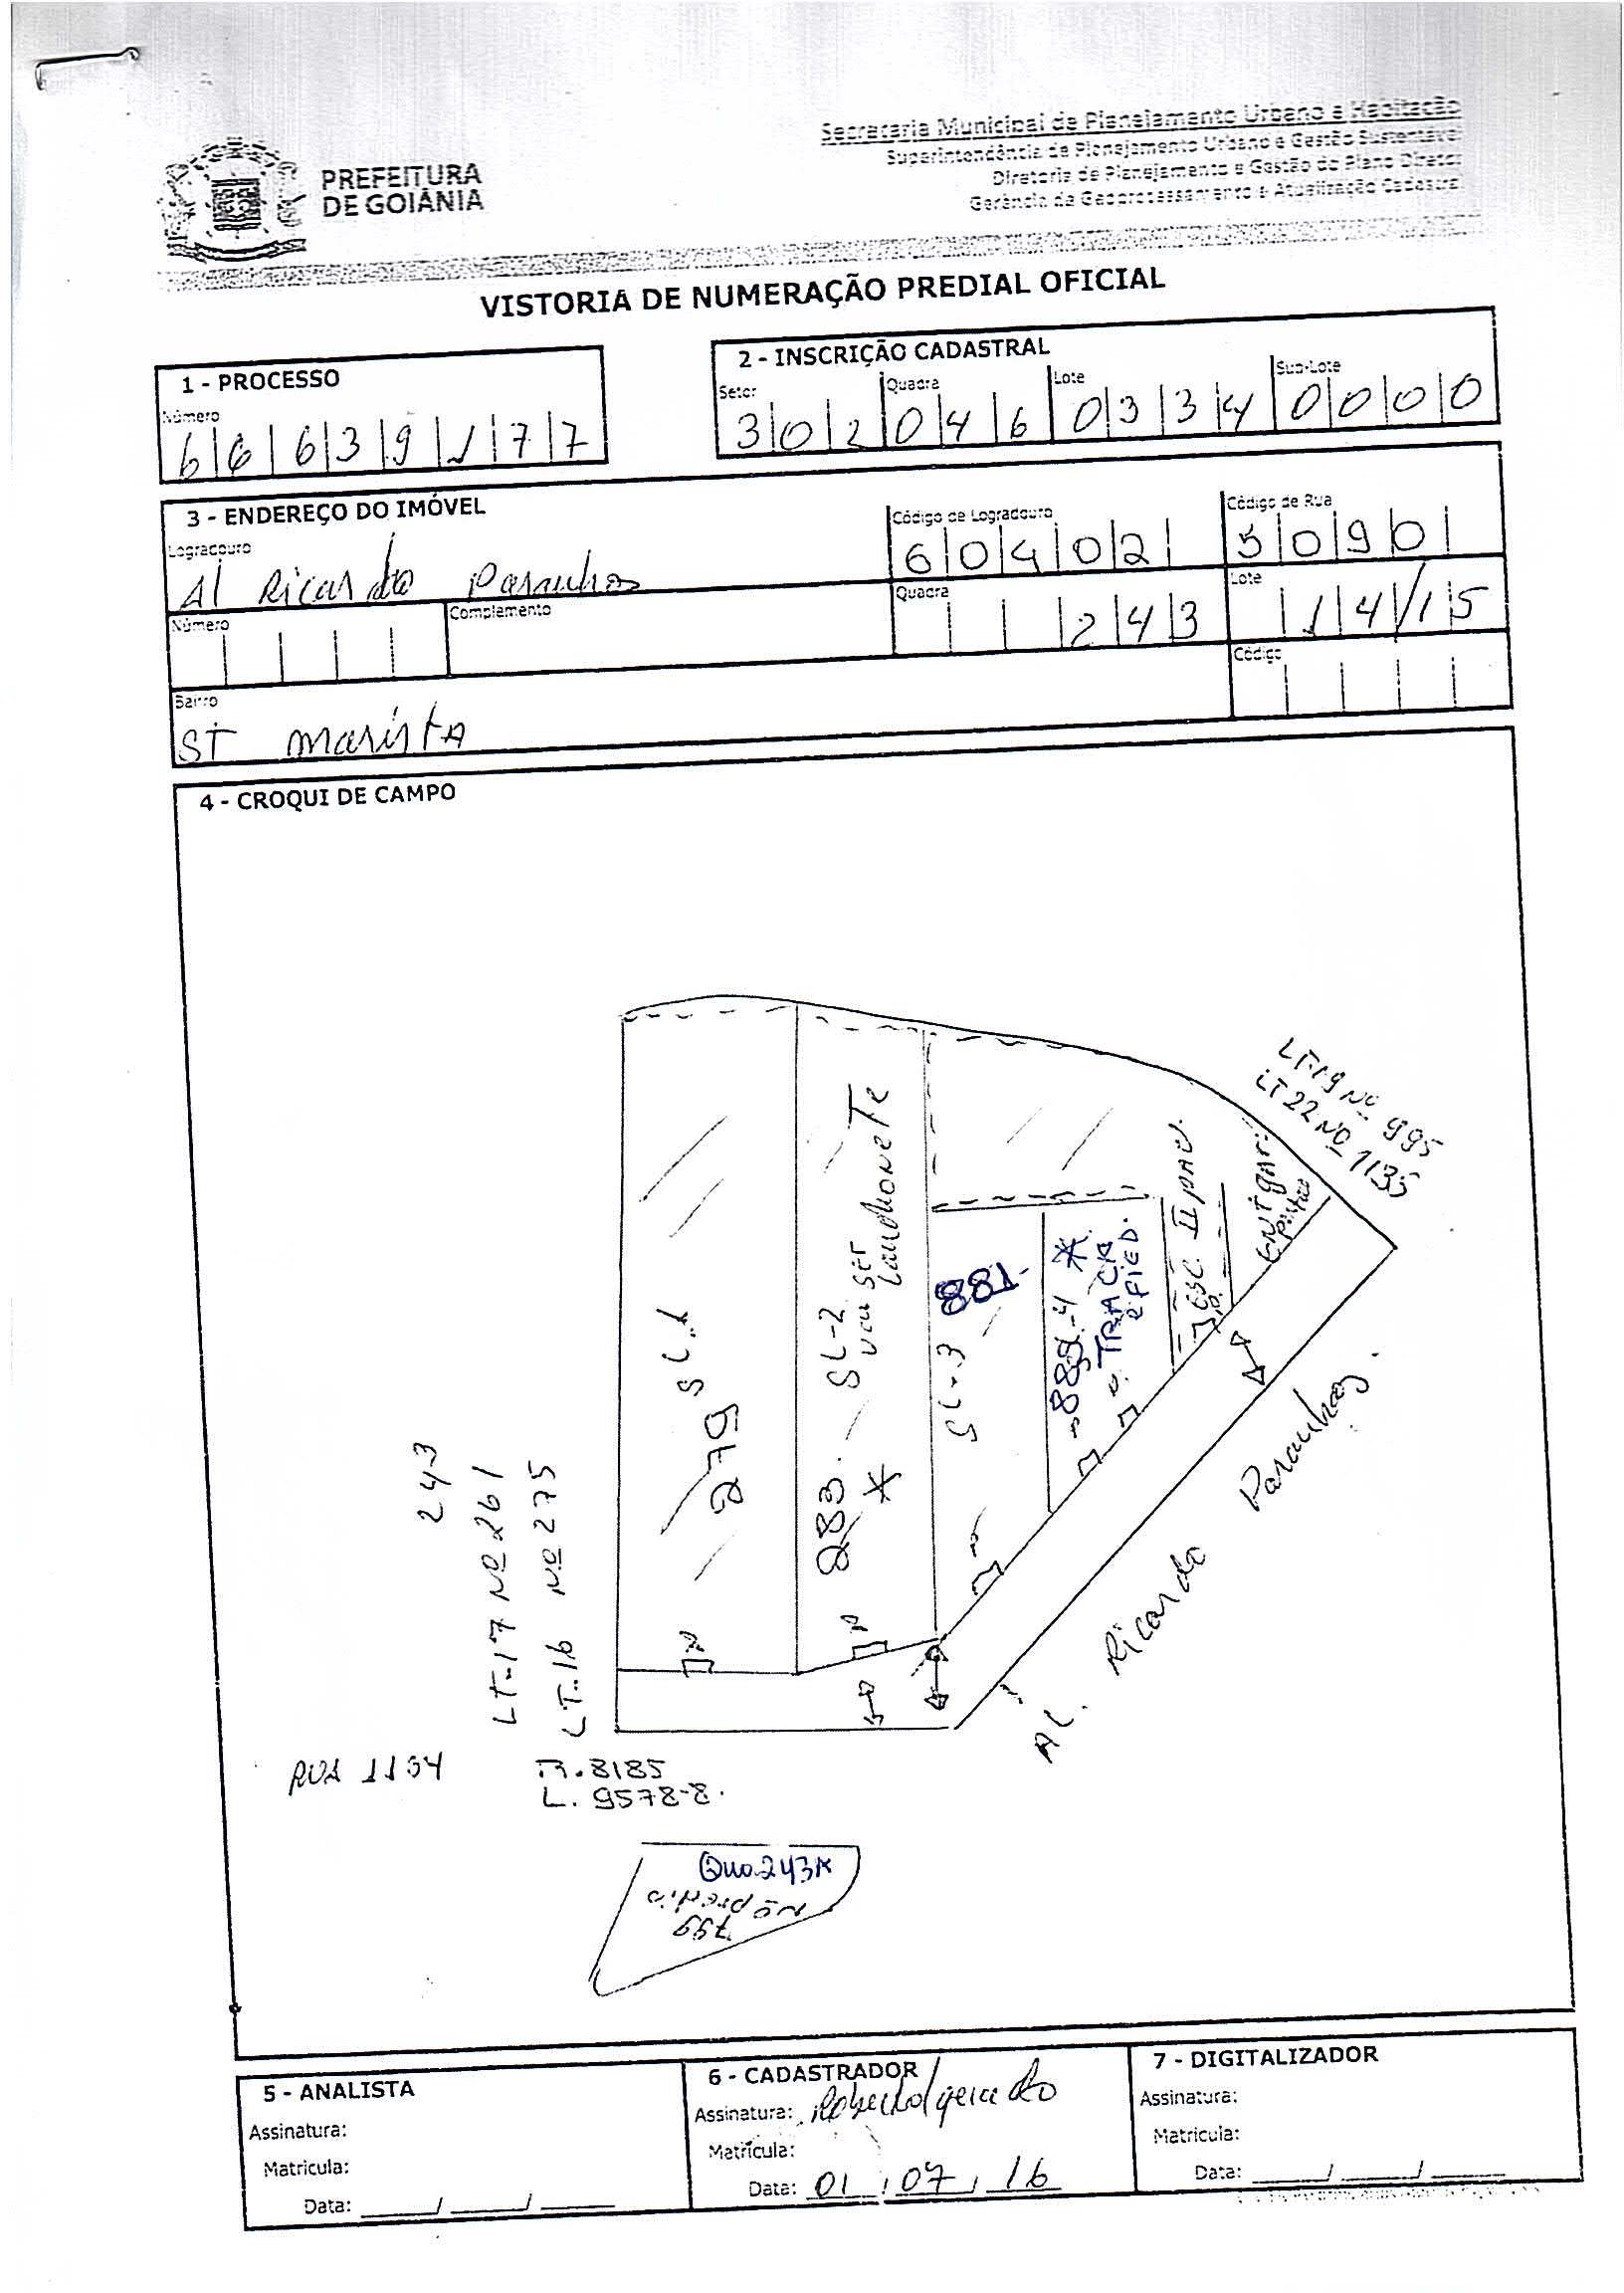 Secretaria Municipal de Planejamento Urbano e Habitação
Superintendência de Planejamento Urbano e Gestão Sustentável
Diretoria de Planejamento e Gestão do Plano Diretor
Gerência de Geoprocessamento e Atualização Cadastral
PREFEITURA
DE GOIÂNIA
VISTORIA DE NUMERAÇÃO PREDIAL OFICIAL
1 - PROCESSO
Número
6 6 6 3 9 1 7 7
2 - INSCRIÇÃO CADASTRAL
Setor Quadra Lote Sub-Lote
3 0 2 0 4 6 0 3 3 4 0 0 0 0
3 - ENDEREÇO DO IMÓVEL
Logradouro Código de Logradouro Código de Rua
Al Ricardo Paranhos 6 0 4 0 2 5 0 9 0
Número Complemento Quadra Lote
2 4 3 1 4/1 5
Bairro Código
ST Marista
4 - CROQUI DE CAMPO
LT-19 Nº 995
LT 22 Nº 1135
279 SL1
283 - SL-2
vai ser
Lanchonete
SL-3
881
TRACK
II pav.
243
LT-17 Nº 261
LT-16 Nº 275
AL. Ricardo Paranhos.
RUA 1134
R. 8185
L. 9578-8.
Qua 243A
Nº predio
799
5 - ANALISTA
Assinatura:
Matrícula:
Data: ___/___/___
6 - CADASTRADOR
Assinatura:
Matrícula:
Data: 01/07/16
7 - DIGITALIZADOR
Assinatura:
Matrícula:
Data: ___/___/___